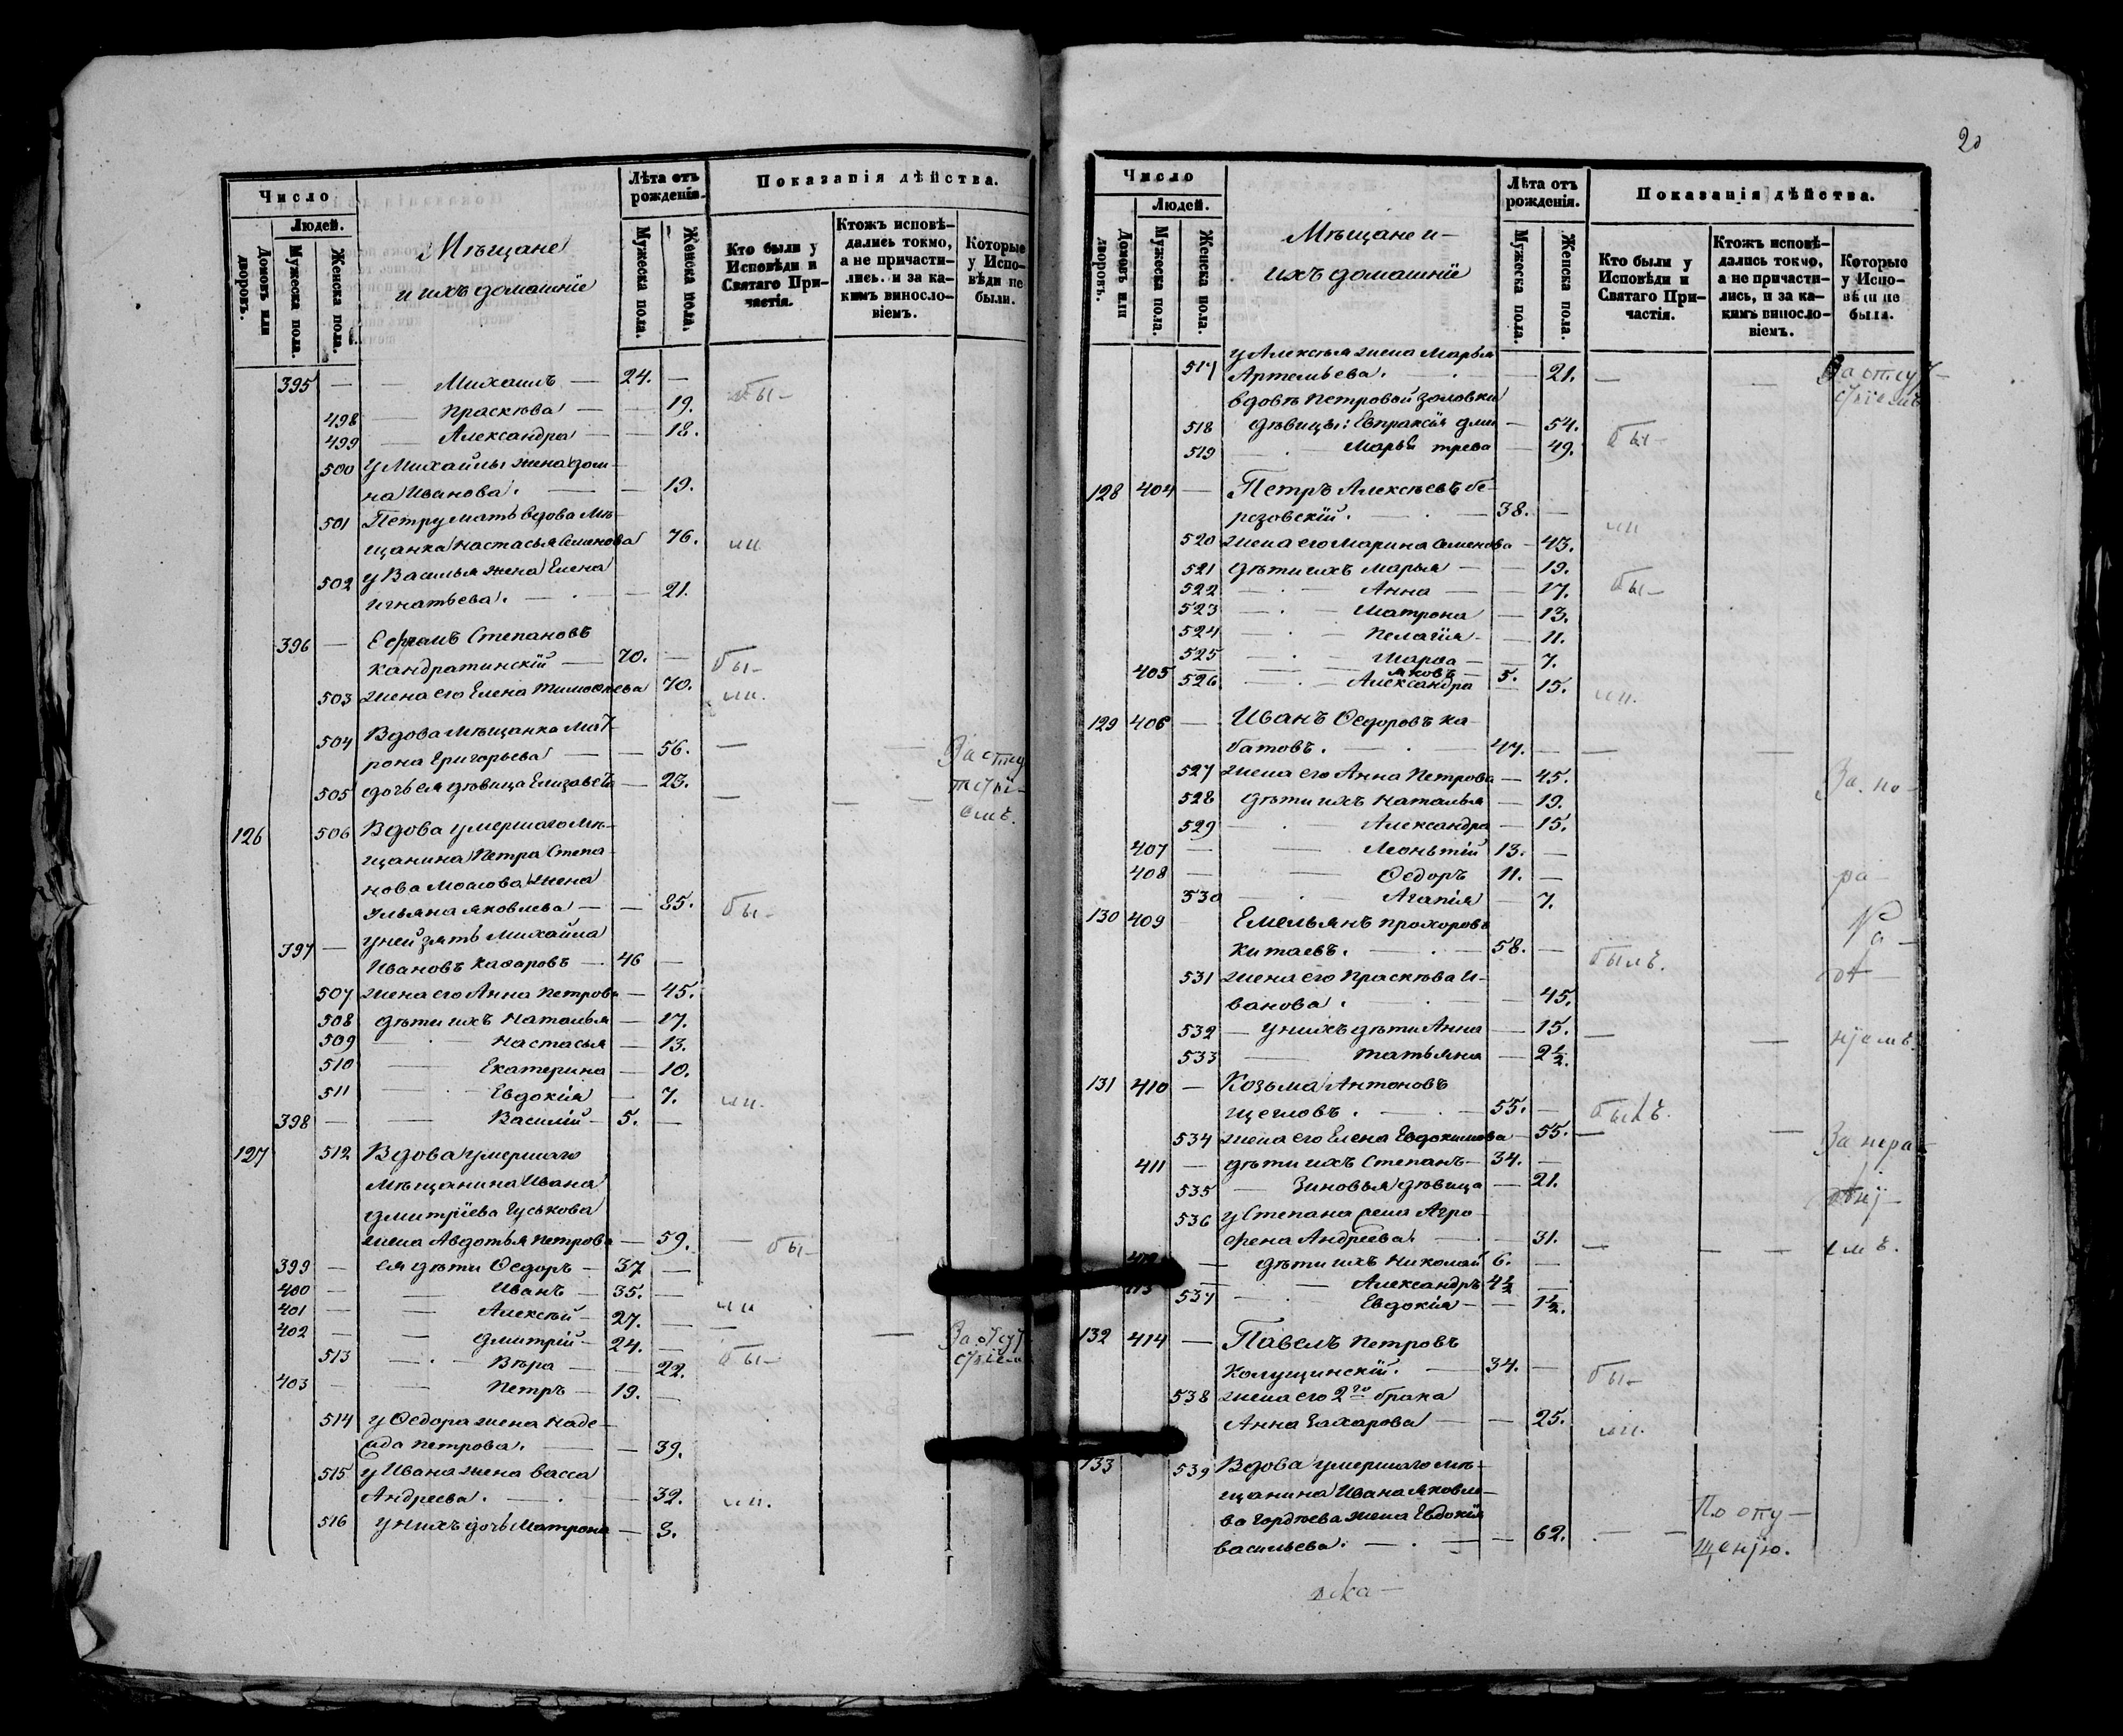 Число
Людей.
Домовъ или дворовъ.
Мужеска пола.
Женска пола.
Мѣщане
и ихъ домашніе
Лѣта отъ рожденія.
Мужеска пола.
Женска пола.
Показанія дѣйства.
Кто были у Исповѣди и Святаго Причастія.
Ктожъ исповѣдались токмо, а не причастились. и за какимъ винословіемъ.
Которые у Исповѣди не были.
395 — — Михаилъ — 24. —
498 — Праскева — — 19. бы-
499 — Александра — — 18.
500 у Михайлы жена Дом-
на Иванова. — — 19.
501 Петру мать вдова мѣ-
щанка Настасья Семенова 76. ли
502 у Василья жена Елена
Игнатьева. — . — — 21.
396 — Ефремъ Степановъ
Кандратинскій — 70. — бы-
503 жена его Елена Тимоѳеева 70. ли.
504 Вдова мѣщанка Мат-
рона Григорьева — — 56. — — За отсу
505 дочь ея дѣвица Елизавета — 23. — — — тствi-
емъ.
126 506 Вдова умершаго мѣ-
щанина Петра Степа-
нова жена
Ульяна Яковлева — — 85. бы-
397 — у ней зять Михайла
Ивановъ — 46 —
507 жена его Анна Петрова — 45.
508 дѣти ихъ Наталья — 17.
509 — . — Настасья — 13.
510 — Екатерина — 10.
511 — . Евдокія — 7. ли.
398 — — Василій — 5. —
127 512 Вдова умершаго
мѣщанина Ивана
Дмитріева Гуськова
жена Авдотья Петрова — 59. — бы-
399 — ея дѣти Ѳедоръ — 37 —
400 — — Иванъ — 35. —
401 — — Алексѣй — 27. — ли
402 — — Дмитрій — 24. — — За отсут-
513 — . — Вѣра — — 22. бы- ствіем
403 — — Петръ — 19. —
514 у Ѳедора жена Наде-
жда Петрова. — — 39.
515 у Ивана жена Васса
Андреева. — . — 32. ли.
516 у нихъ дочь Матрона — 3.
20
Число
Людей.
Домовъ или дворовъ.
Мужеска пола.
Женска пола.
Мѣщане и-
ихъ домашніе
Лѣта отъ рожденія.
Мужеска пола.
Женска пола.
Показанія дѣйства.
Кто были у Исповѣди и Святаго Причастія.
Ктожъ исповѣдались токмо, а не причастились, и за какимъ винословіемъ.
Которые у Исповѣди не были.
у Алексѣя жена Марья
517 Артемьева. — . — 21. — — За отсут-
вдовѣ Петровой золовки ствіемъ
518 дѣвицы: Евпраксія Дми — 54. бы-
519 — . — Марья трева — 49.
128 404 — Петръ Алексѣевъ Бе-
резовскій. — . — 38. — ли
520 жена его Марина Семенова — 43.
521 дѣти ихъ Марья — — 19.
522 — . — Анна — — 17. бы-
523 — . — Матрона — 13.
524 — . — Пелагія — 11.
525 — . — Марѳа — — 7.
405 — Яковъ — 5.
526 — . — Александра — 15. ли.
129 406 — Иванъ Ѳедоровъ Ка-
батовъ. — . — 47. — — —
527 жена его Анна Петрова — 45. За не-
528 дѣти ихъ Наталья — 19.
529 — . — Александра — 15.
407 — — Леонтій 13. —
408 — — Ѳедоръ 11. — ра-
530 — . — Агапія — 7.
130 409 — Емельянъ Прохоровъ
Китаевъ. — . — 58. — былъ.
531 жена его Праскева И-
ванова. — . — 45.
532 — у нихъ дѣти Анна — 15. — —
533 — Татьяна — 2½.
131 410 — Козьма Антоновъ
Щегловъ. — . — 55. — былъ.
534 жена его Елена Евдокимова — 55. — — За нера-
411 — дѣти ихъ Степанъ — 34. —
535 — Зиновья дѣвица — 21.
536 у Степана жена Агро-
фена Андреева. — . — 31. — — — емъ.
— дѣти ихъ Николай 6. —
— Александръ 4½ —
537 — . Евдокія — — 1½.
132 414 — Павелъ Петровъ
Колущинскій. — 34. — бы-
538 жена его 2го брака
Анна Захарова — — 25. ли.
133 539 Вдова умершаго мѣ-
щанина Ивана Яковле-
ва Гордѣева жена Евдокія
Васильева. — . — — 62. — — По опу-
щенію.